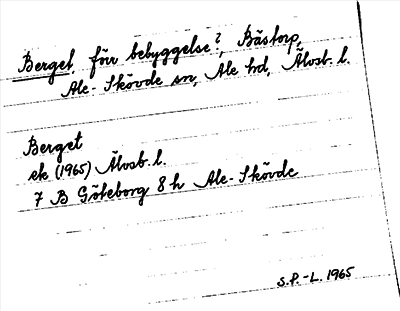 Berget, förr bebyggelse?, Bästorp,
Ale-Skövde sn, Ale hd, Älvsb. l.
Berget
ek (1965) Älvsb. l.
7 B Göteborg 8 h Ale-Skövde
S.P.-L. 1965